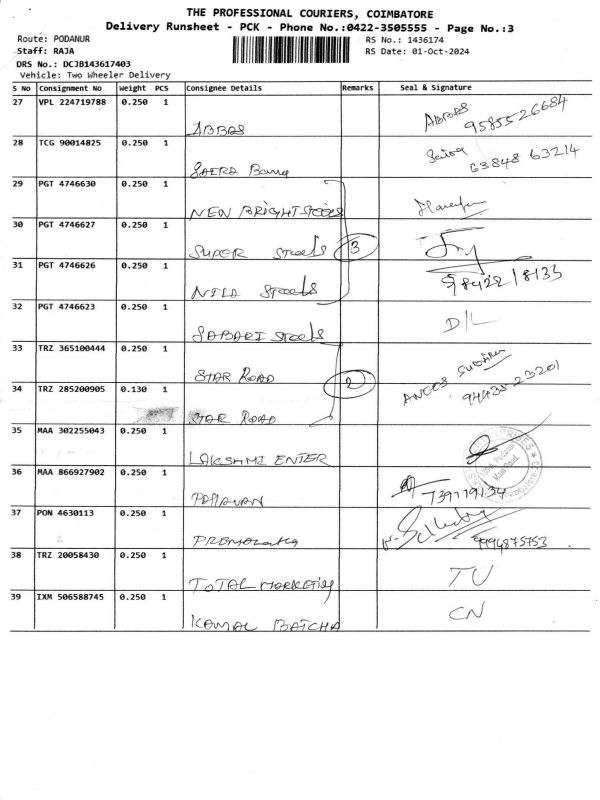 THE PROFESSIONAL COURIERS, COIMBATORE
Delivery Runsheet - PCK - Phone No.:0422-3505555 - Page No.:3
Route: PODANUR
RS No.: 1436174
Staff: RAJA
RS Date: 01-Oct-2024
DRS No.: DCJB143617403
Vehicle: Two Wheeler Delivery
S No Consignment No Weight PCS Consignee Details Remarks Seal & Signature
27 VPL 224719788 0.250 1
ABBAS ABBAS 9585526684
28 TCG 90014825 0.250 1
SAIRA Banu 63848 63214
29 PGT 4746630 0.250 1
NEW BRIGHT STEELS
30 PGT 4746627 0.250 1
SUPER Steels 3
31 PGT 4746626 0.250 1
NILA Steels 98422 18133
32 PGT 4746623 0.250 1
SABARI Steels D/L
33 TRZ 365100444 0.250 1
STAR ROAD 2
34 TRZ 285200905 0.130 1
STAR ROAD 94435-23201
35 MAA 302255043 0.250 1
LAKSHMI ENTER
36 MAA 866927902 0.250 1
739779134
37 PON 4630113 0.250 1
9994875753
38 TRZ 20058430 0.250 1
TOTAL MARKETing TU
39 IXM 506588745 0.250 1
KAMAL BATCHA CN